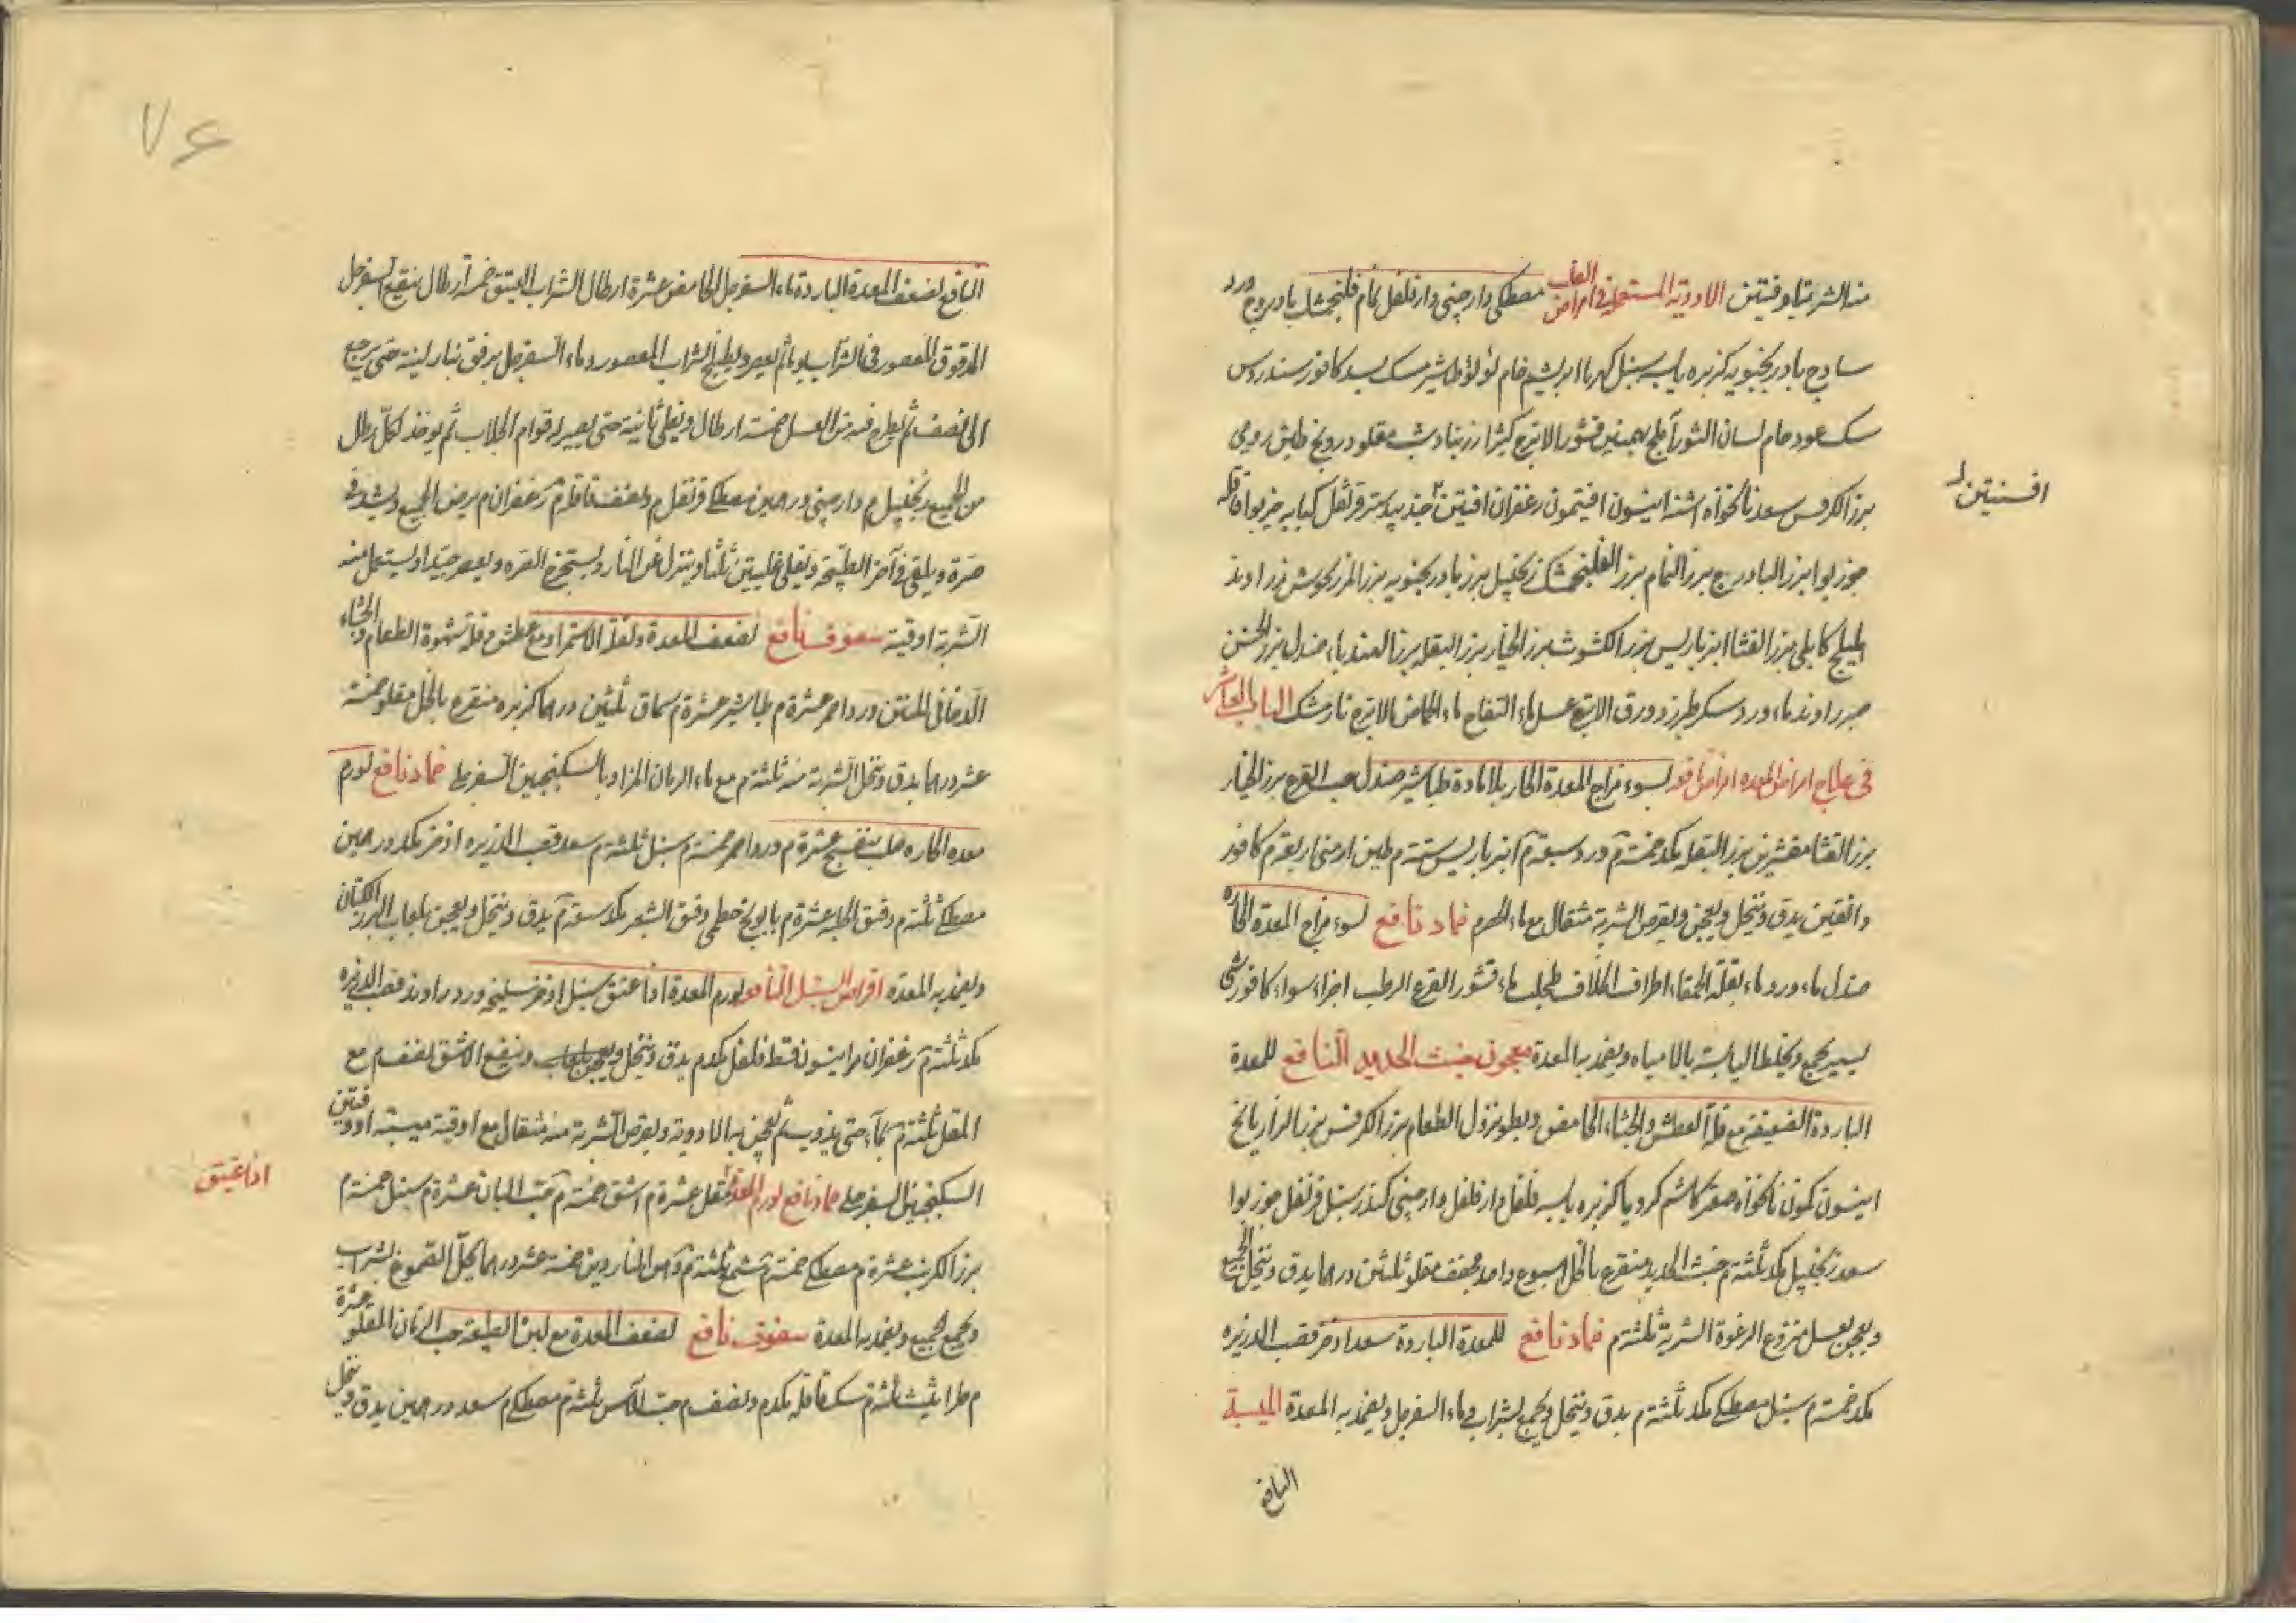 منه الشربة اوقيتين الادوية المستعملة فى امراض القلب مصطكى دارچينى دارفلفل نمام فلنجمشك بادروج ورد
ساذج بادرنجبويه كزبره يابسه سنبل كهربا ابريشم خام لؤلؤ طباشير مسك بسد كافور سندروس
سك عود خام لسان الثور آملج بهمنين قشور الاترج كثيرا زرنباد شب مقلو درونج طين رومى
بزر الكرفس سعد نانخواه اشنه انيسون افتيمون زعفران افتيتن جندبيدستر قرنفل كبابه خيربوا قاقله
افسنتين
جوزبوا بزر البادروج بزر النمام بزر الفلنجمشك زنجبيل بزر بادرنجبويه بزر المرزنجوش زراوند
اهليلج كابلى بزر القثا انبرباريس بزر الكشوث بزر الخيار بزر البقله بزر الهندباء صندل بزر الخس
صبر راوند ماء ورد سكر طبرزد ورق الاترج عسل ماء التفاح ماء الحماض الاترج نارمشك الباب العاشر
فى علاج امراض المعده اقراص نافع لسوء مزاج المعدة الحار بلا مادة طباشير صندل حب القرع بزر الخيار
بزر القثا مقشرين بزر البقله مكد خمسة م ورد سبعة م انبرباريس ستة م طين ارمنى اربعة م كافور
دانقين يدق وينخل ويعجن ويقرص الشربة مثقال مع ماء الحصرم ضماد نافع لسوء مزاج المعدة الحاره
صندل ماء ورد ماء بقلة الحمقاء اطراف الخلاف طحلب ماء قشور القرع الرطب اجزاء سواء كافور شى
يسير يجمع ويخلط اليابسة بالامياه ويضمد به المعدة معجون خبث الحديد النافع للمعدة
الباردة الضعيفة مع قلة العطش والجشاء الحامض وبطو نزول الطعام بزر الكرفس بزر الرازيانج
انيسون كمون نانخواه صعتر كاشم كرويا كزبره يابسه فلفل دارفلفل دارچينى كندر سنبل قرنفل جوزبوا
سعد زنجبيل مكد ثلثة م خبث الحديد منقوع بالخل اسبوع واحد مجفف مقلو ثلثين درهما يدق وينخل الجميع
ويعجن بعسل منزوع الرغوة الشربة ثلثة م ضماد نافع للمعدة الباردة سعد اذخر قصب الذريره
مكد خمسة م سنبل مصطكى مكد ثلثة م يدق وينخل ويجمع بشراب وماء السفرجل ويضمد به المعدة الميبة
النافع
٧٤
النافع لضعف المعدة الباردة ماء السفرجل الحامض عشرة ارطال الشراب العتيق خمسة ارطال ينقع السفرجل
المدقوق المعصور فى الشراب يوما ثم يعصر ويطبخ الشراب المعصور وماء السفرجل برفق بنار لينة حتى يرجع
الى النصف ثم يطرح فيه من العسل خمسة ارطال ويغلى ثانية حتى يصير له قوام الجلاب ثم يوخذ لكل رطل
من الجميع زنجبيل م دارچينى درهمين مصطكى قرنفل م ونصف قاقله م زعفران م يرض الجميع ويشد فى
صرة ويلقى فى آخر الطبخة ويغلى غليتين ثلثا وينزل عن النار ويستخرج الصره ويعصر جيدا ويستعمل منه
الشربة اوقية سفوف نافع لضعف المعدة ولقلة الاستمراء ومع عطش وقلة شهوة الطعام والجشاء
الدخانى المنتن ورد احمر عشرة م طباشير عشرة م سماق ثلثين درهما كزبره منقوع بالخل مقلو خمسة
عشر درهما يدق وينخل الشربة منه ثلثة م مع ماء الرمان المز او بالسكنجبين السفرجلى ضماد نافع لورم
معده الحاره صلب بنفسج عشرة م ورد احمر خمسة م سنبل ثلثة م سعد قصب الذريره اذخر مكد درهمين
مصطكى ثلثة م دقيق الحلبه عشرة م بابونج خطمى دقيق الشعير مكد سبعة م يدق وينخل ويعجن بلعاب البزر الكتان
ويضمد به المعده اقراص السنبل النافع لورم المعدة اذا عتق سنبل اذخر سليخه ورد راوند قصب الذريره
مكد ثلثة م زعفران مر انيسون قسط فلفل مكدم يدق وينخل وينقع الاشق نصف م مع
المقل ثلثة م بماء حتى يذوب ثم يعجن به الادوية ويقرص الشربة منه مثقال مع اوقية ميبته او وقيتين
السكنجبين السفرجلى ضماد نافع لورم المعدة مقل عشرة م اشق خمسة م حب البان عشرة م سنبل خمسة م
اذا عتيق
بزر الكرنب عشرة م مصطكى خمسة م شمع ثلثة م دهن الناردين خمسة عشر درهما يحل الصموغ بشراب
ويجمع الجميع ويضمد به المعدة سفوف نافع لضعف المعدة مع لين الطبيعة حب الرمان المقلو عشرة
م طراثيث ثلثة م سك قاقله مكدم ونصف م حب الآس ثلثة م مصطكى م سعد درهمين يدق وينخل